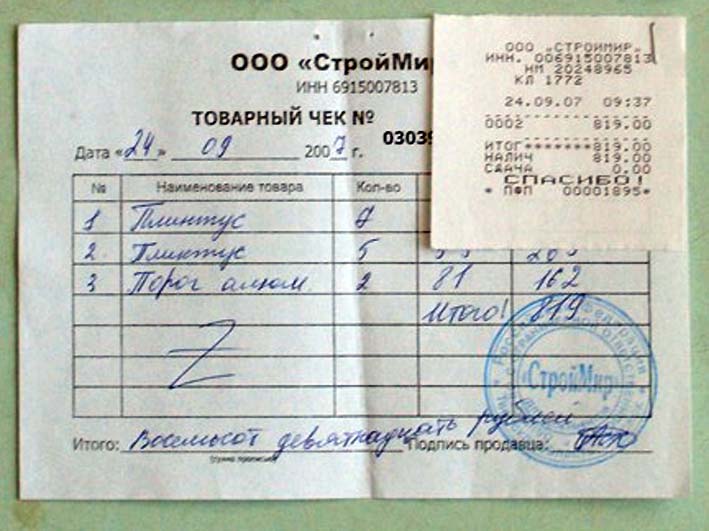 ООО «СтройМир
ИНН 6915007813
ТОВАРНЫЙ ЧЕК №
03039
Дата «24» 09 2007 г.
№ Наименование товара Кол-во
1 Плинтус 7
2. Плинтус 5
3 Порог алюм. 2 81 162
Итого! 819
Итого: Восемьсот девятнадцать рублей Подпись продавца:
(сумма прописью)
«СтройМир»
ООО «СТРОЙМИР»
ИНН. 006915007813
НМ 20248965
КЛ 1772
24.09.07 09:37
0002 819.00
ИТОГ*******819.00
НАЛИЧ 819.00
СДАЧА 0.00
СПАСИБО!
* ПФП 00001895*